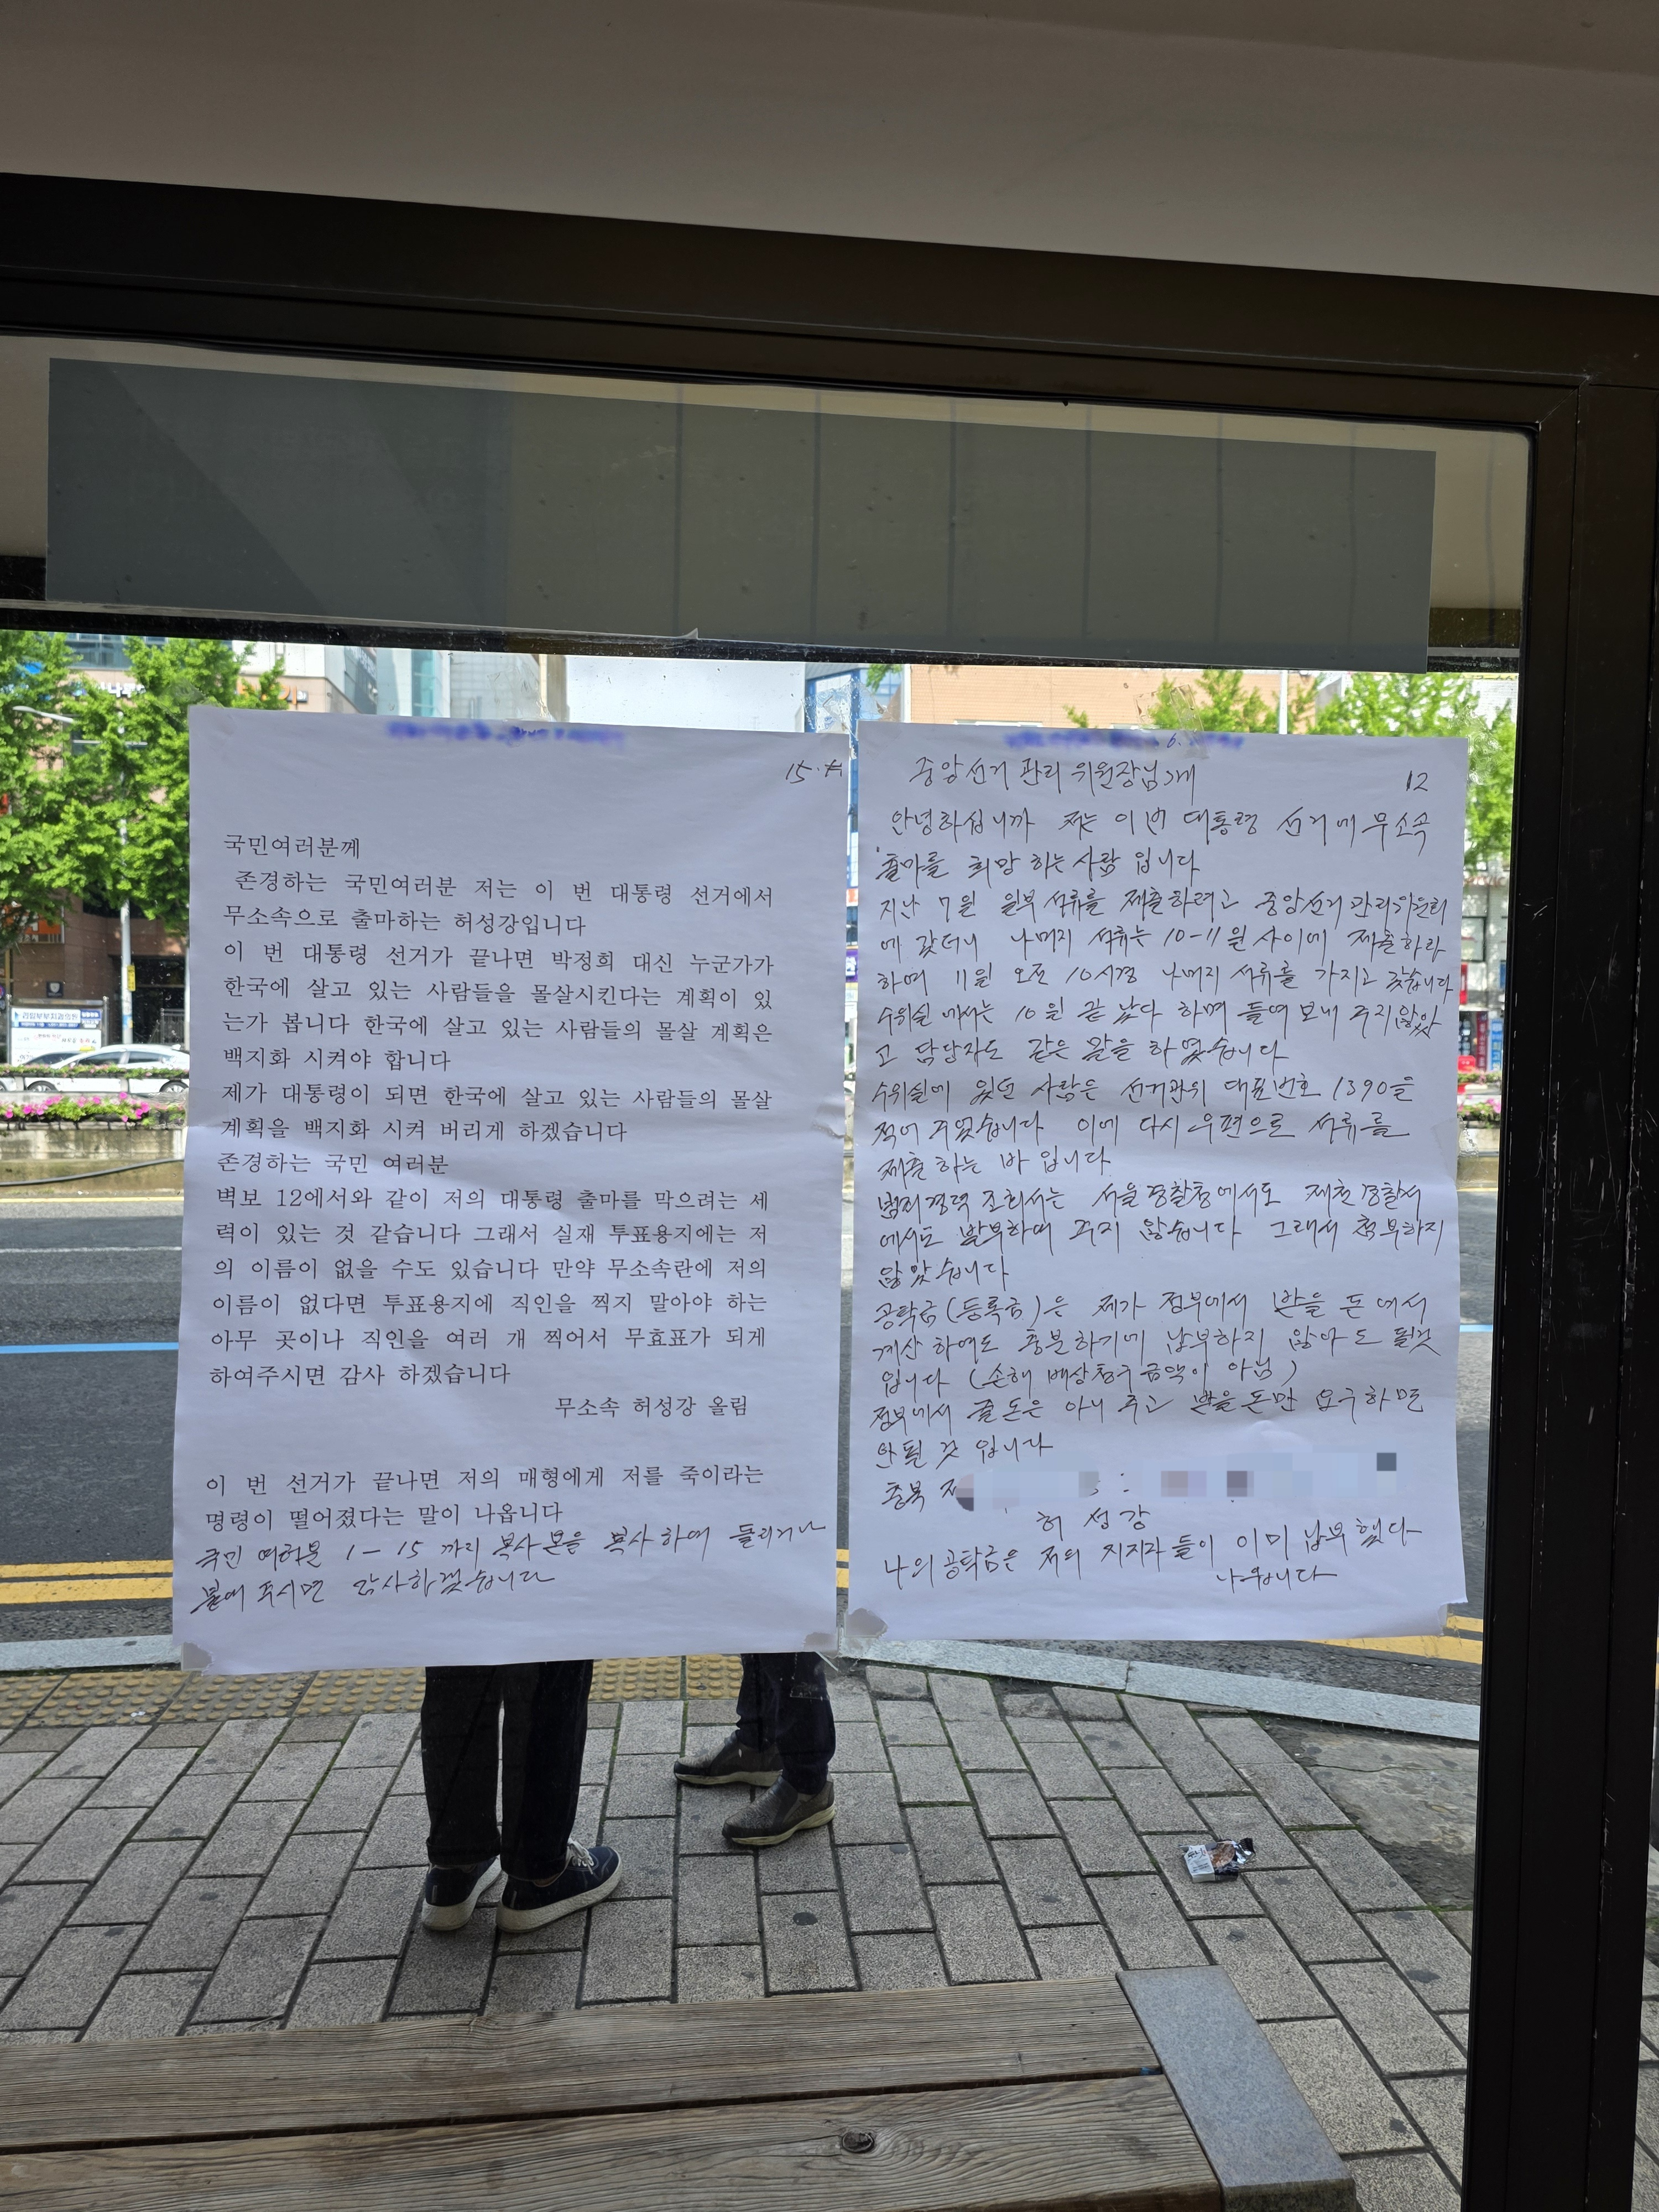 15.
국민여러분께
존경하는 국민여러분 저는 이 번 대통령 선거에서
무소속으로 출마하는 허성강입니다
이 번 대통령 선거가 끝나면 박정희 대신 누군가가
한국에 살고 있는 사람들을 몰살시킨다는 계획이 있
는가 봅니다 한국에 살고 있는 사람들의 몰살 계획은
백지화 시켜야 합니다
제가 대통령이 되면 한국에 살고 있는 사람들의 몰살
계획을 백지화 시켜 버리게 하겠습니다
존경하는 국민 여러분
벽보 12에서와 같이 저의 대통령 출마를 막으려는 세
력이 있는 것 같습니다 그래서 실재 투표용지에는 저
의 이름이 없을 수도 있습니다 만약 무소속란에 저의
이름이 없다면 투표용지에 직인을 찍지 말아야 하는
아무 곳이나 직인을 여러 개 찍어서 무효표가 되게
하여주시면 감사 하겠습니다
무소속 허성강 올림
이 번 선거가 끝나면 저의 매형에게 저를 죽이라는
명령이 떨어졌다는 말이 나옵니다
국민 여러분 1-15 까지 복사본을 복사하여 돌리거나
붙여 주시면 감사하겠습니다
중앙선거 관리 위원장님께
12
안녕하십니까 저는 이번 대통령 선거에 무소속
출마를 희망 하는 사람 입니다
지난 7일 일부 서류를 제출하려고 중앙선거관리위원회
에 갔더니 나머지 서류는 10-11일 사이에 제출하라
하여 11일 오전 10시경 나머지 서류를 가지고 갔습니다
수위실에서는 10일 끝났다 하며 들여 보내 주지않았
고 담당자도 같은 말을 하였습니다
수위실에 있던 사람은 선거관위 대표번호 1390을
적어 주었습니다 이에 다시 우편으로 서류를
제출하는 바 입니다
범죄경력 조회서는 서울경찰청에서도 제천경찰서
에서도 발부하여 주지 않습니다 그래서 첨부하지
않았습니다
공탁금(등록금)은 제가 정부에서 받을 돈에서
계산 하여도 충분하기에 납부하지 않아도 될것
입니다 (손해 배상청구 금액이 아님)
정부에서 줄돈은 아니 주고 받을돈만 요구하면
안될 것 입니다
충북
허성강
나의 공탁금은 저의 지지자들이 이미 납부했다
나옵니다